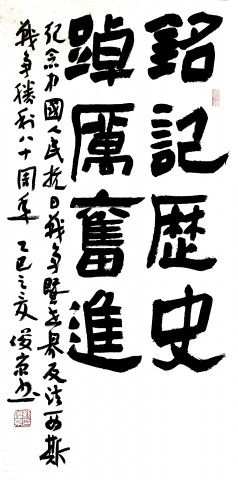 銘記歷史
踔厲奮進
紀念中國人民抗日戰爭暨世界反法西斯
戰爭勝利八十周年 乙巳之夏 俊京书